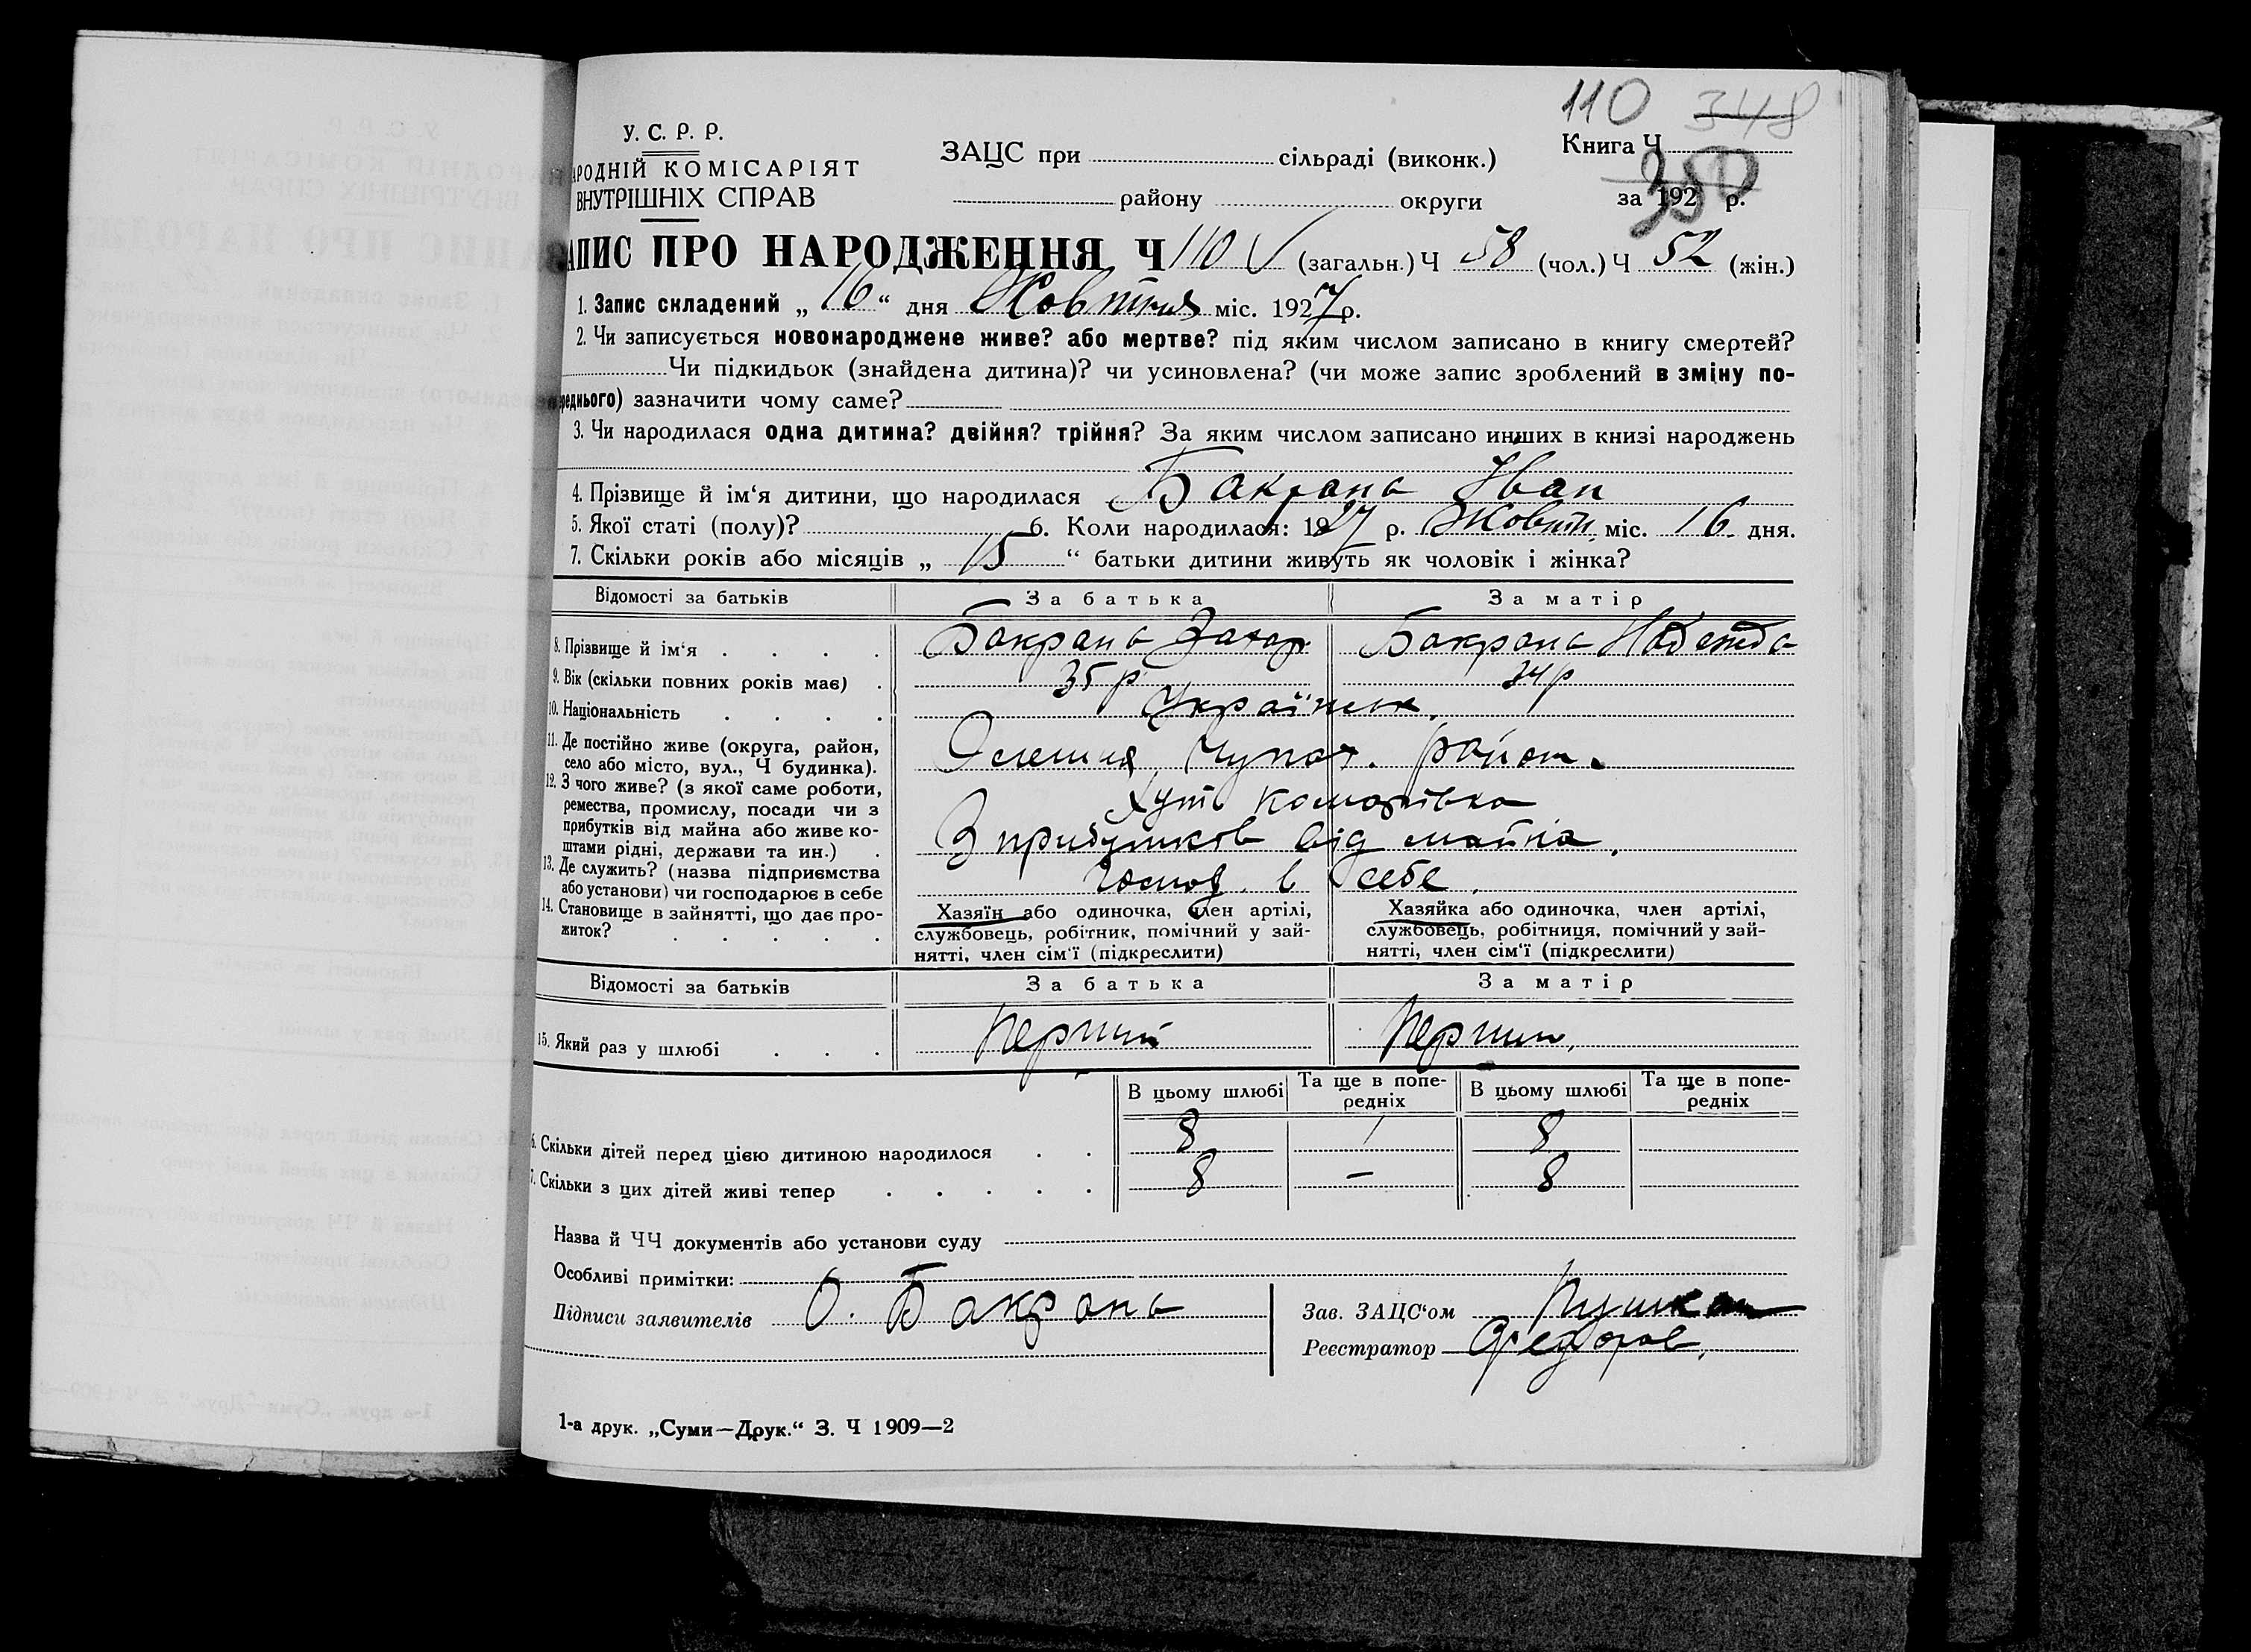 110 348
У. С. Р. Р.
АРОДНІЙ КОМІСАРІЯТ
ВНУТРІШНІХ СПРАВ
ЗАЦС при сільраді (виконк.)
району округи
Книга Ч
350
за 192 р.
АПИС ПРО НАРОДЖЕННЯ Ч 110 (загальн.) Ч 58 (чол.) Ч 52 (жін.)
1. Запис складений „ 16 “ дня Жовтня міс. 1927 р.
2. Чи записується новонароджене живе? або мертве? під яким числом записано в книгу смертей?
Чи підкидьок (знайдена дитина)? чи усиновлена? (чи може запис зроблений в зміну по-
реднього) зазначити чому саме?
3. Чи народилася одна дитина? двійня? трійня? За яким числом записано инших в книзі народжень
4. Прізвище й ім‘я дитини, що народилася Бакрана Іван
5. Якої статі (полу)? 6. Коли народилася: 1927 р. Жовтн. міс. 16 дня.
7. Скільки років або місяців „ 15 “ батьки дитини живуть як чоловік і жінка?
Відомості за батьків За батька За матір
8. Прізвище й ім‘я Бакрана Захар Бакрана Надежда
9. Вік (скільки повних років має) 35 р 34 р
10. Національність Україньск.
11. Де постійно живе (округа, район,
село або місто, вул., Ч будинка). Олешня, Чупах. район.
Хут.
12. З чого живе? (з якої саме роботи,
ремества, промислу, посади чи з
прибутків від майна або живе ко-
штами рідні, держави та ин.) З прибутков від майна.
13. Де служить? (назва підприємства
або установи) чи господарює в себе Господ. в себе.
14. Становище в зайнятті, що дає про-
житок?
Хазяїн або одиночка, член артілі,
службовець, робітник, помічний у зай-
нятті, член сім‘ї (підкреслити)
Хазяйка або одиночка, член артілі,
службовець, робітниця, помічний у зай-
нятті, член сім‘ї (підкреслити)
Відомості за батьків За батька За матір
15. Який раз у шлюбі Перший Перший
В цьому шлюбі Та ще в попе-
редніх В цьому шлюбі Та ще в попе-
редніх
6. Скільки дітей перед цією дитиною народилося 8 / 8
7. Скільки з цих дітей живі тепер 8 – 8
Назва й ЧЧ документів або установи суду
Особливі примітки:
Підписи заявителів О. Бакрана
Зав. ЗАЦС‘ом
Реєстратор Федоров.
1-а друк. „Суми—Друк.“ З. Ч 1909—2